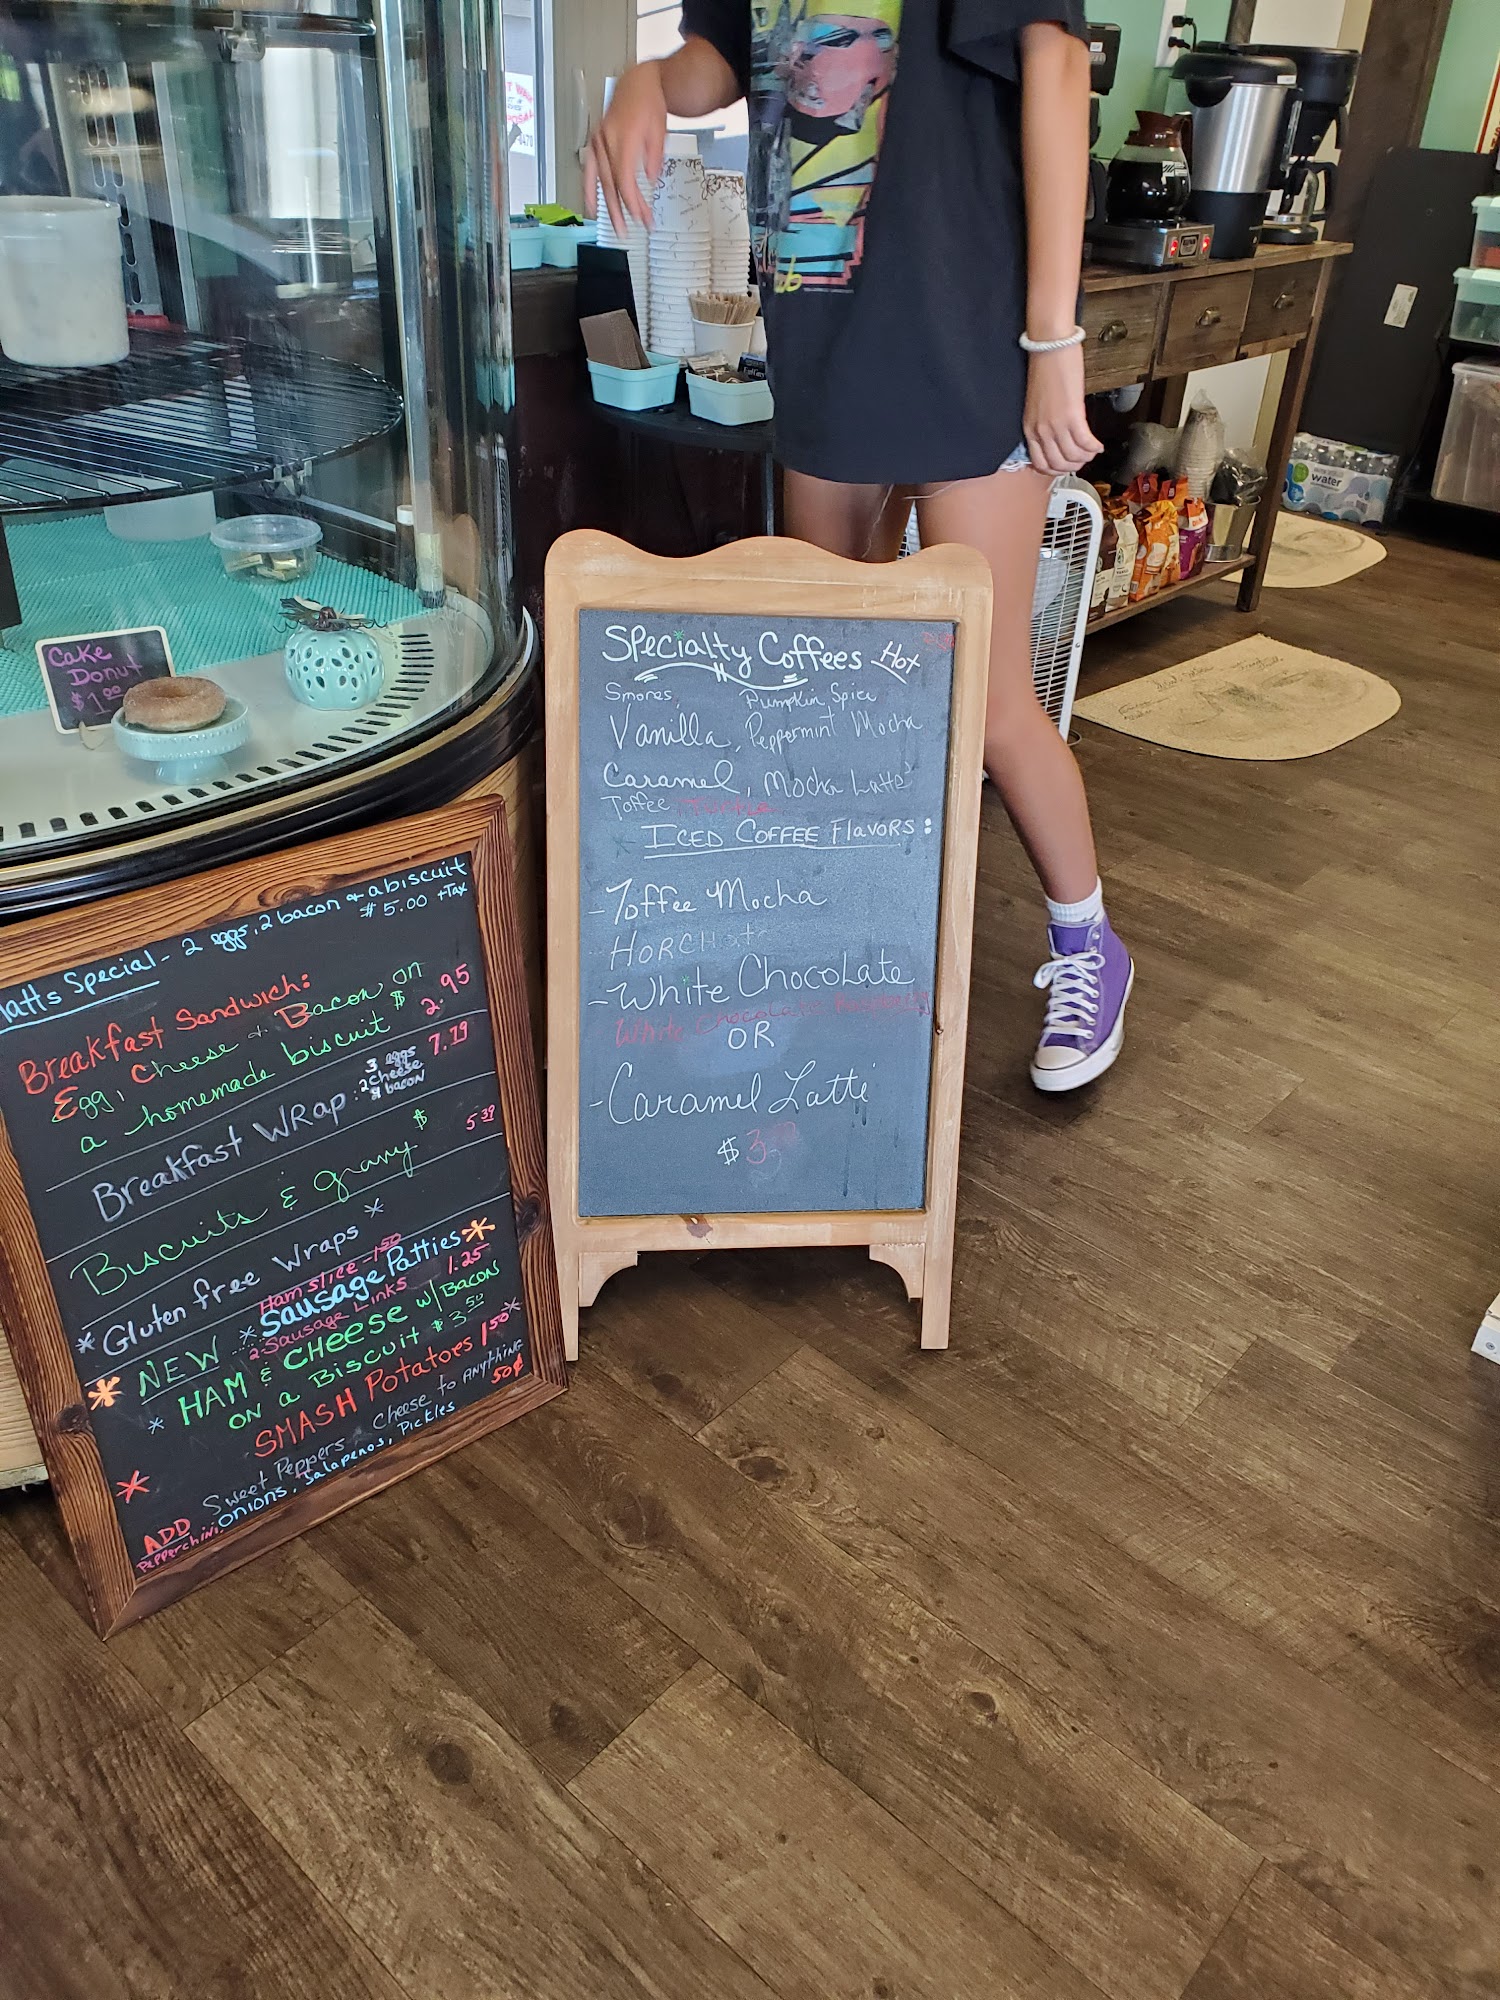 Cake
Donut
$1.00
Matts Special - 2 eggs, 2 bacon & a biscuit
$5.00 +Tax
Breakfast Sandwich:
Egg, Cheese & Bacon on
a homemade biscuit $2.95
Breakfast WRap: 3 eggs 2 cheese & bacon 7.79
Biscuits & gravy $5.39
*Gluten free Wraps*
Ham slice - 1.50
* NEW *Sausage Patties*
2 Sausage Links 1.25
* HAM & CHEESE w/ BACON
ON a BISCUIT $3.50
SMASH Potatoes 1.50*
* Sweet Peppers Cheese to ANYTHING 50¢
ADD onions, Jalapenos, Pickles
Specialty Coffees Hot
Smores, Pumpkin Spice
Vanilla, Peppermint Mocha
Caramel, Mocha Latte
Toffee
ICED COFFEE Flavors:
- Toffee Mocha
HORCHata
- White Chocolate
White Chocolate
OR
- Caramel Latte
$3
water